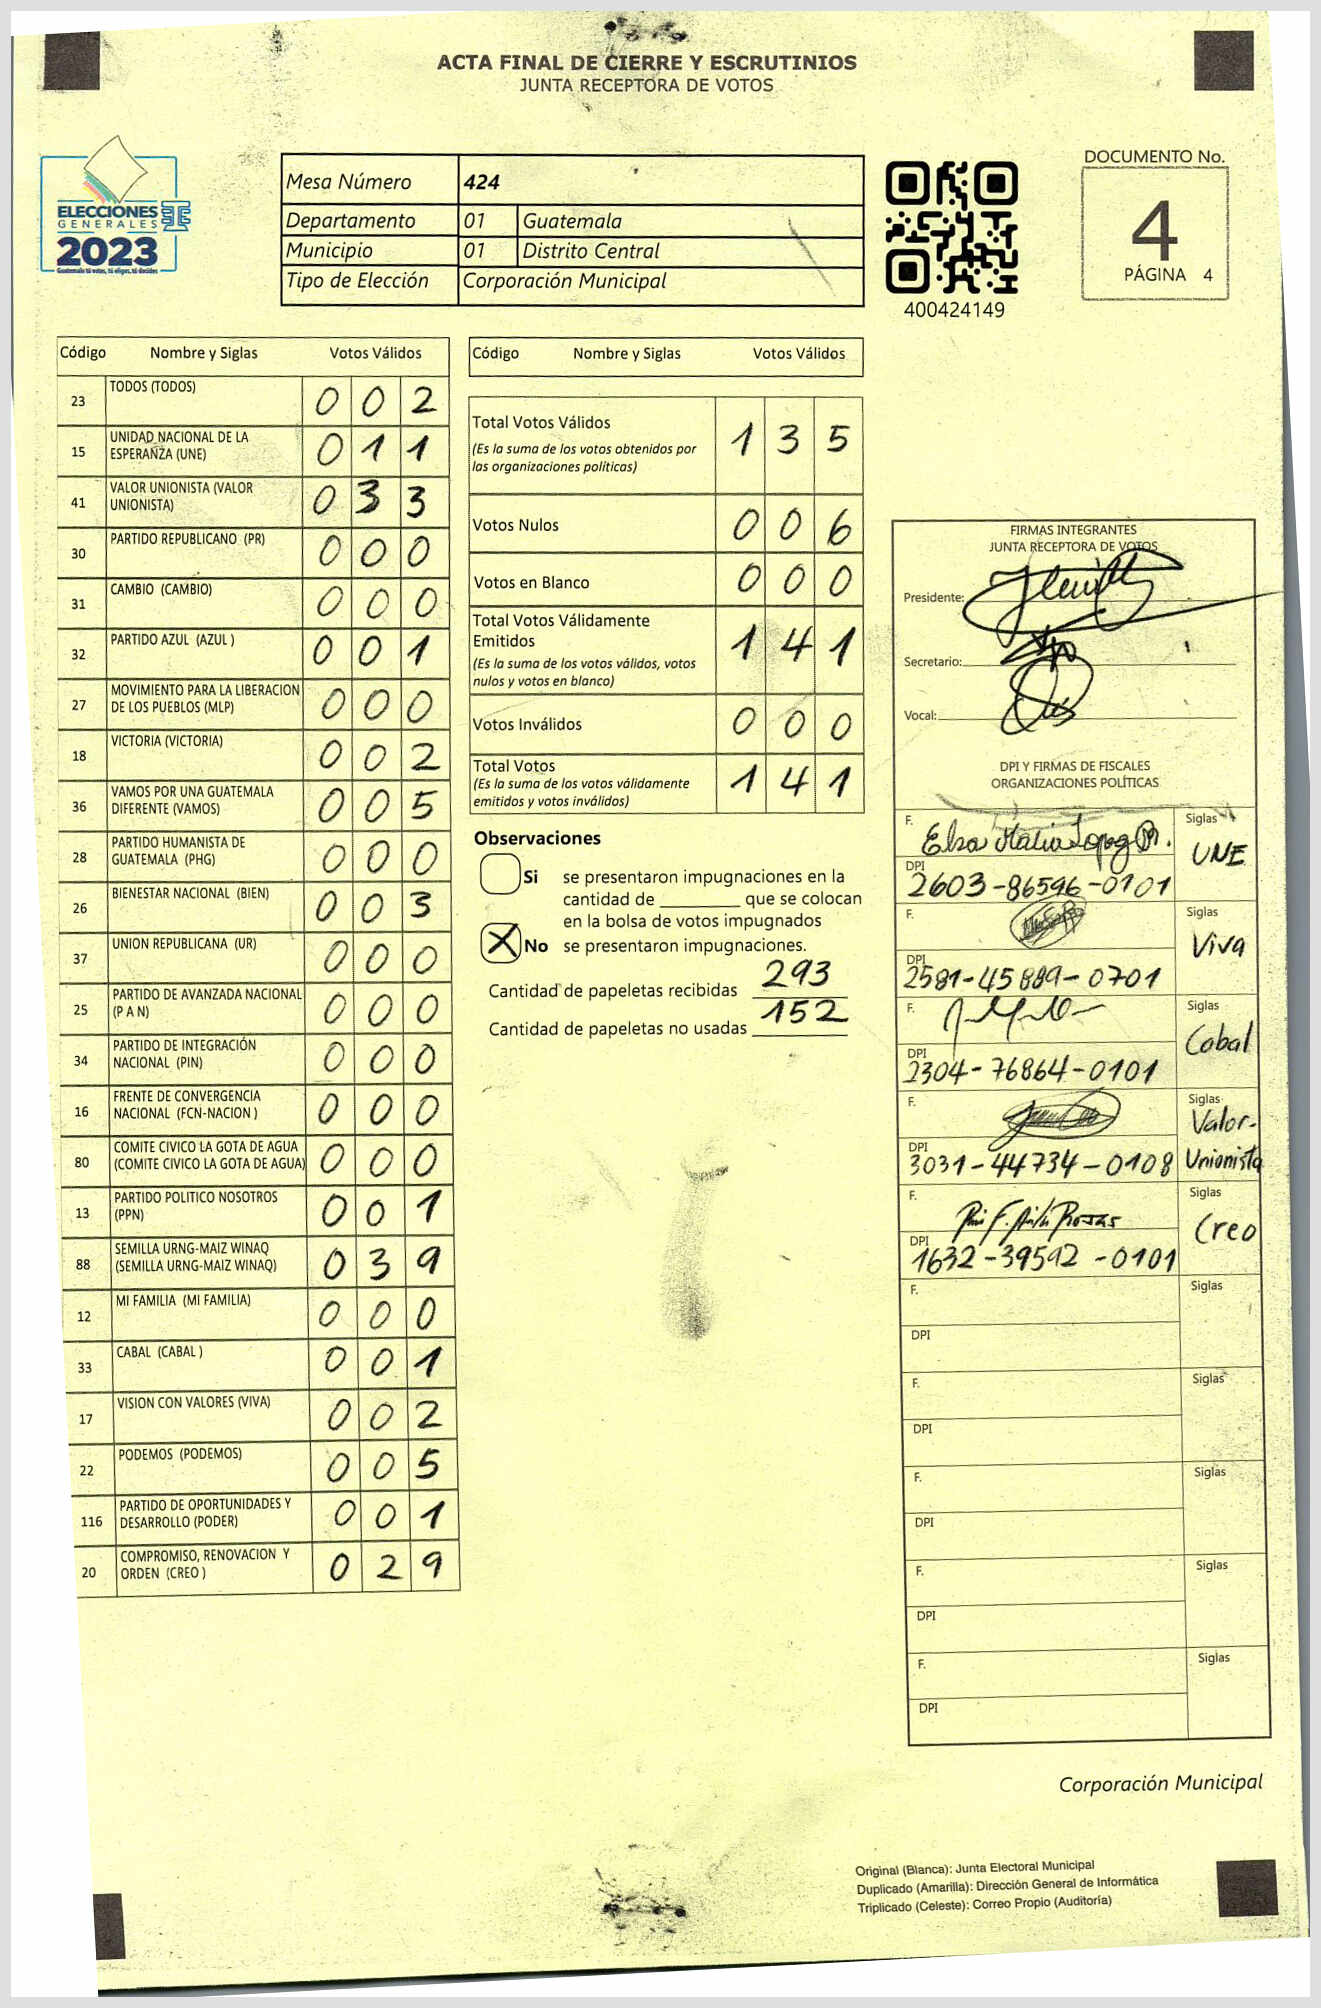 ACTA FINAL DE CIERRE Y ESCRUTINIOS
JUNTA RECEPTORA DE VOTOS
ELECCIONES
GENERALES
2023
Guatemala tú votas, tú eliges, tú decides
Mesa Número 424
Departamento 01 Guatemala
Municipio 01 Distrito Central
Tipo de Elección Corporación Municipal
400424149
DOCUMENTO No.
4
PÁGINA 4
Código Nombre y Siglas Votos Válidos
23 TODOS (TODOS) 0 0 2
15 UNIDAD NACIONAL DE LA
ESPERANZA (UNE) 0 1 1
41 VALOR UNIONISTA (VALOR
UNIONISTA) 0 3 3
30 PARTIDO REPUBLICANO (PR) 0 0 0
31 CAMBIO (CAMBIO) 0 0 0
32 PARTIDO AZUL (AZUL ) 0 0 1
27 MOVIMIENTO PARA LA LIBERACION
DE LOS PUEBLOS (MLP) 0 0 0
18 VICTORIA (VICTORIA) 0 0 2
36 VAMOS POR UNA GUATEMALA
DIFERENTE (VAMOS) 0 0 5
28 PARTIDO HUMANISTA DE
GUATEMALA (PHG) 0 0 0
26 BIENESTAR NACIONAL (BIEN) 0 0 3
37 UNION REPUBLICANA (UR) 0 0 0
25 PARTIDO DE AVANZADA NACIONAL
(P A N) 0 0 0
34 PARTIDO DE INTEGRACIÓN
NACIONAL (PIN) 0 0 0
16 FRENTE DE CONVERGENCIA
NACIONAL (FCN-NACION ) 0 0 0
80 COMITE CIVICO LA GOTA DE AGUA
(COMITE CIVICO LA GOTA DE AGUA) 0 0 0
13 PARTIDO POLITICO NOSOTROS
(PPN) 0 0 1
88 SEMILLA URNG-MAIZ WINAQ
(SEMILLA URNG-MAIZ WINAQ) 0 3 9
12 MI FAMILIA (MI FAMILIA) 0 0 0
33 CABAL (CABAL ) 0 0 1
17 VISION CON VALORES (VIVA) 0 0 2
22 PODEMOS (PODEMOS) 0 0 5
116 PARTIDO DE OPORTUNIDADES Y
DESARROLLO (PODER) 0 0 1
20 COMPROMISO, RENOVACION Y
ORDEN (CREO ) 0 2 9
Código Nombre y Siglas Votos Válidos
Total Votos Válidos 1 3 5
(Es la suma de los votos obtenidos por
las organizaciones políticas)
Votos Nulos 0 0 6
Votos en Blanco 0 0 0
Total Votos Válidamente
Emitidos 1 4 1
(Es la suma de los votos válidos, votos
nulos y votos en blanco)
Votos Inválidos 0 0 0
Total Votos 1 4 1
(Es la suma de los votos válidamente
emitidos y votos inválidos)
Observaciones
Si se presentaron impugnaciones en la
cantidad de ________ que se colocan
en la bolsa de votos impugnados
X No se presentaron impugnaciones.
Cantidad de papeletas recibidas 293
Cantidad de papeletas no usadas 152
FIRMAS INTEGRANTES
JUNTA RECEPTORA DE VOTOS
Presidente:
Secretario:
Vocal:
DPI Y FIRMAS DE FISCALES
ORGANIZACIONES POLÍTICAS
F. Elsa Maria Lopez Siglas UNE
DPI 2603-86596-0101
F. Siglas Viva
DPI 2581-45889-0701
F. Siglas Cabal
DPI 2304-76864-0101
F. Siglas Valor-
DPI 3031-44734-0108 Unionista
F. Siglas Creo
DPI 1632-39592-0101
F. Siglas
DPI
F. Siglas
DPI
F. Siglas
DPI
F. Siglas
DPI
F. Siglas
DPI
Corporación Municipal
Original (Blanca): Junta Electoral Municipal
Duplicado (Amarilla): Dirección General de Informática
Triplicado (Celeste): Correo Propio (Auditoría)